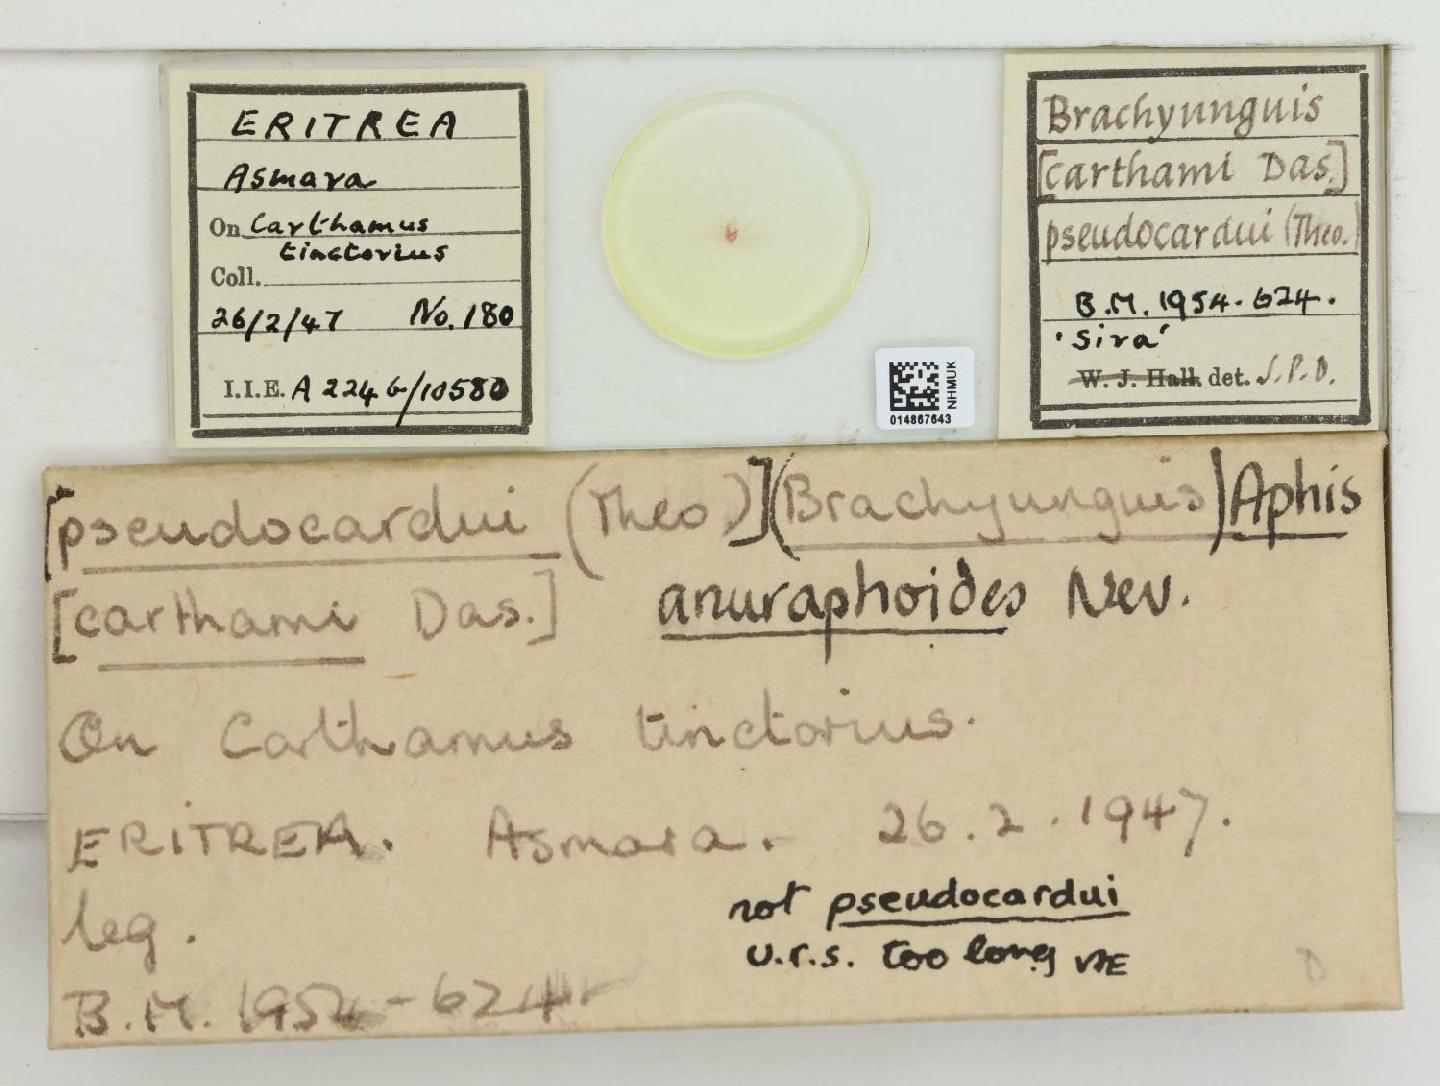 ERITREA
Asmara
On Carthamus
tinctorius
Coll.
26/2/47 No. 180
I.I.E. A 2246/10580
NHMUK
014867643
Brachyunguis
[carthami Das.]
pseudocardui (Theo.)
B.M. 1954-624.
'Sira'
W. J. Hall. det. J.P.D.
[pseudocardui (Theo)] (Brachyunguis) Aphis
[carthami Das.] anuraphoides Nev.
On Carthamus tinctorius.
ERITREA. Asmara. - 26.2.1947.
leg.
not pseudocardui
u.r.s. too long VFE
B.M. 1954-624